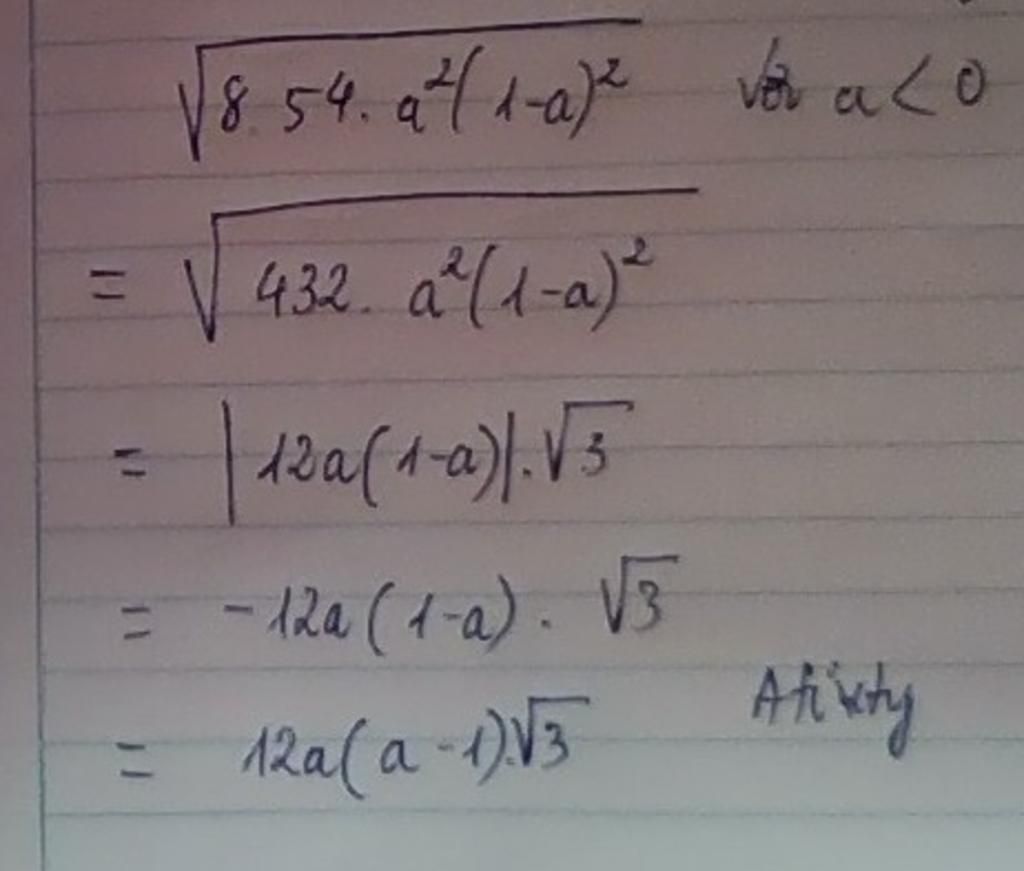 √8.54.a²(1-a)² với a < 0
= √432.a²(1-a)²
= |12a(1-a)|.√3
= -12a(1-a).√3
= 12a(a-1).√3